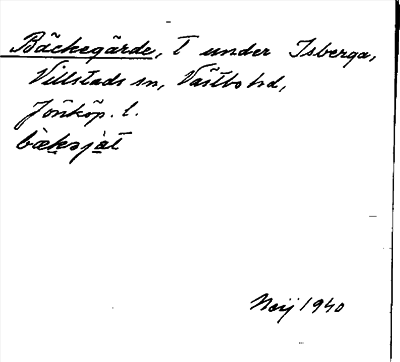 Bäckegärde, T under Isberga,
Villstads sn, Västbo hd,
Jönköp. l.
bæksjat
Neij 1940